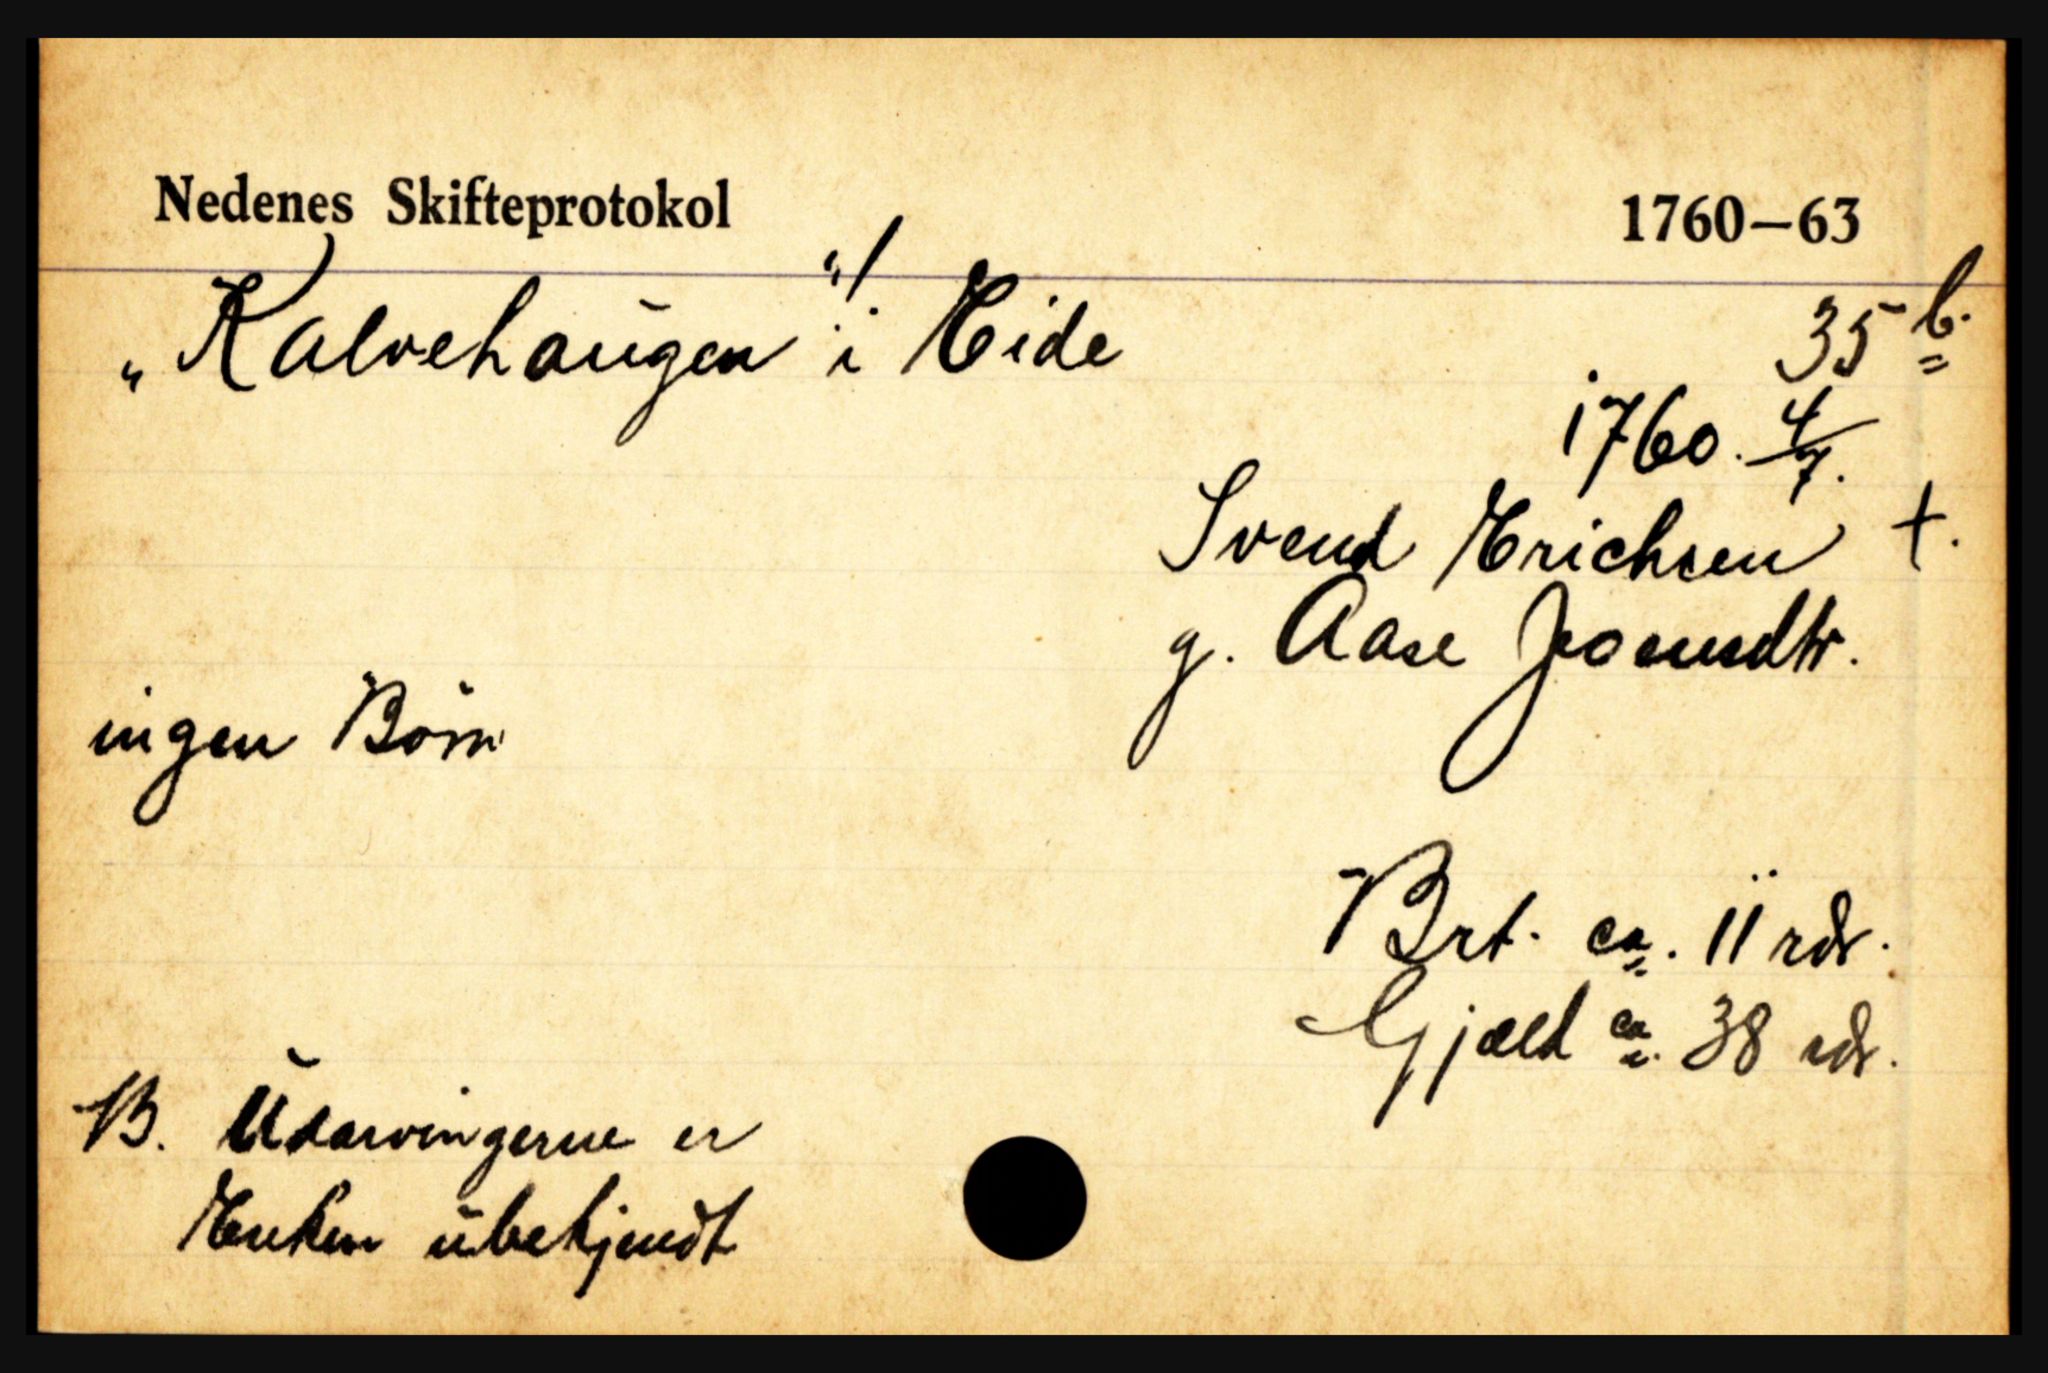 Nedenes Skifteprotokol 1760—63
„Kalvehaugen“ / i Eide 35 b.
1760. 4/7.
Svend Erichsen †.
g. Aase
ingen Börn
Brt. ca. 11 rdr.
Gjæld ca. 38 rdr.
B. Udarvingerne er
Enken ubekjendt